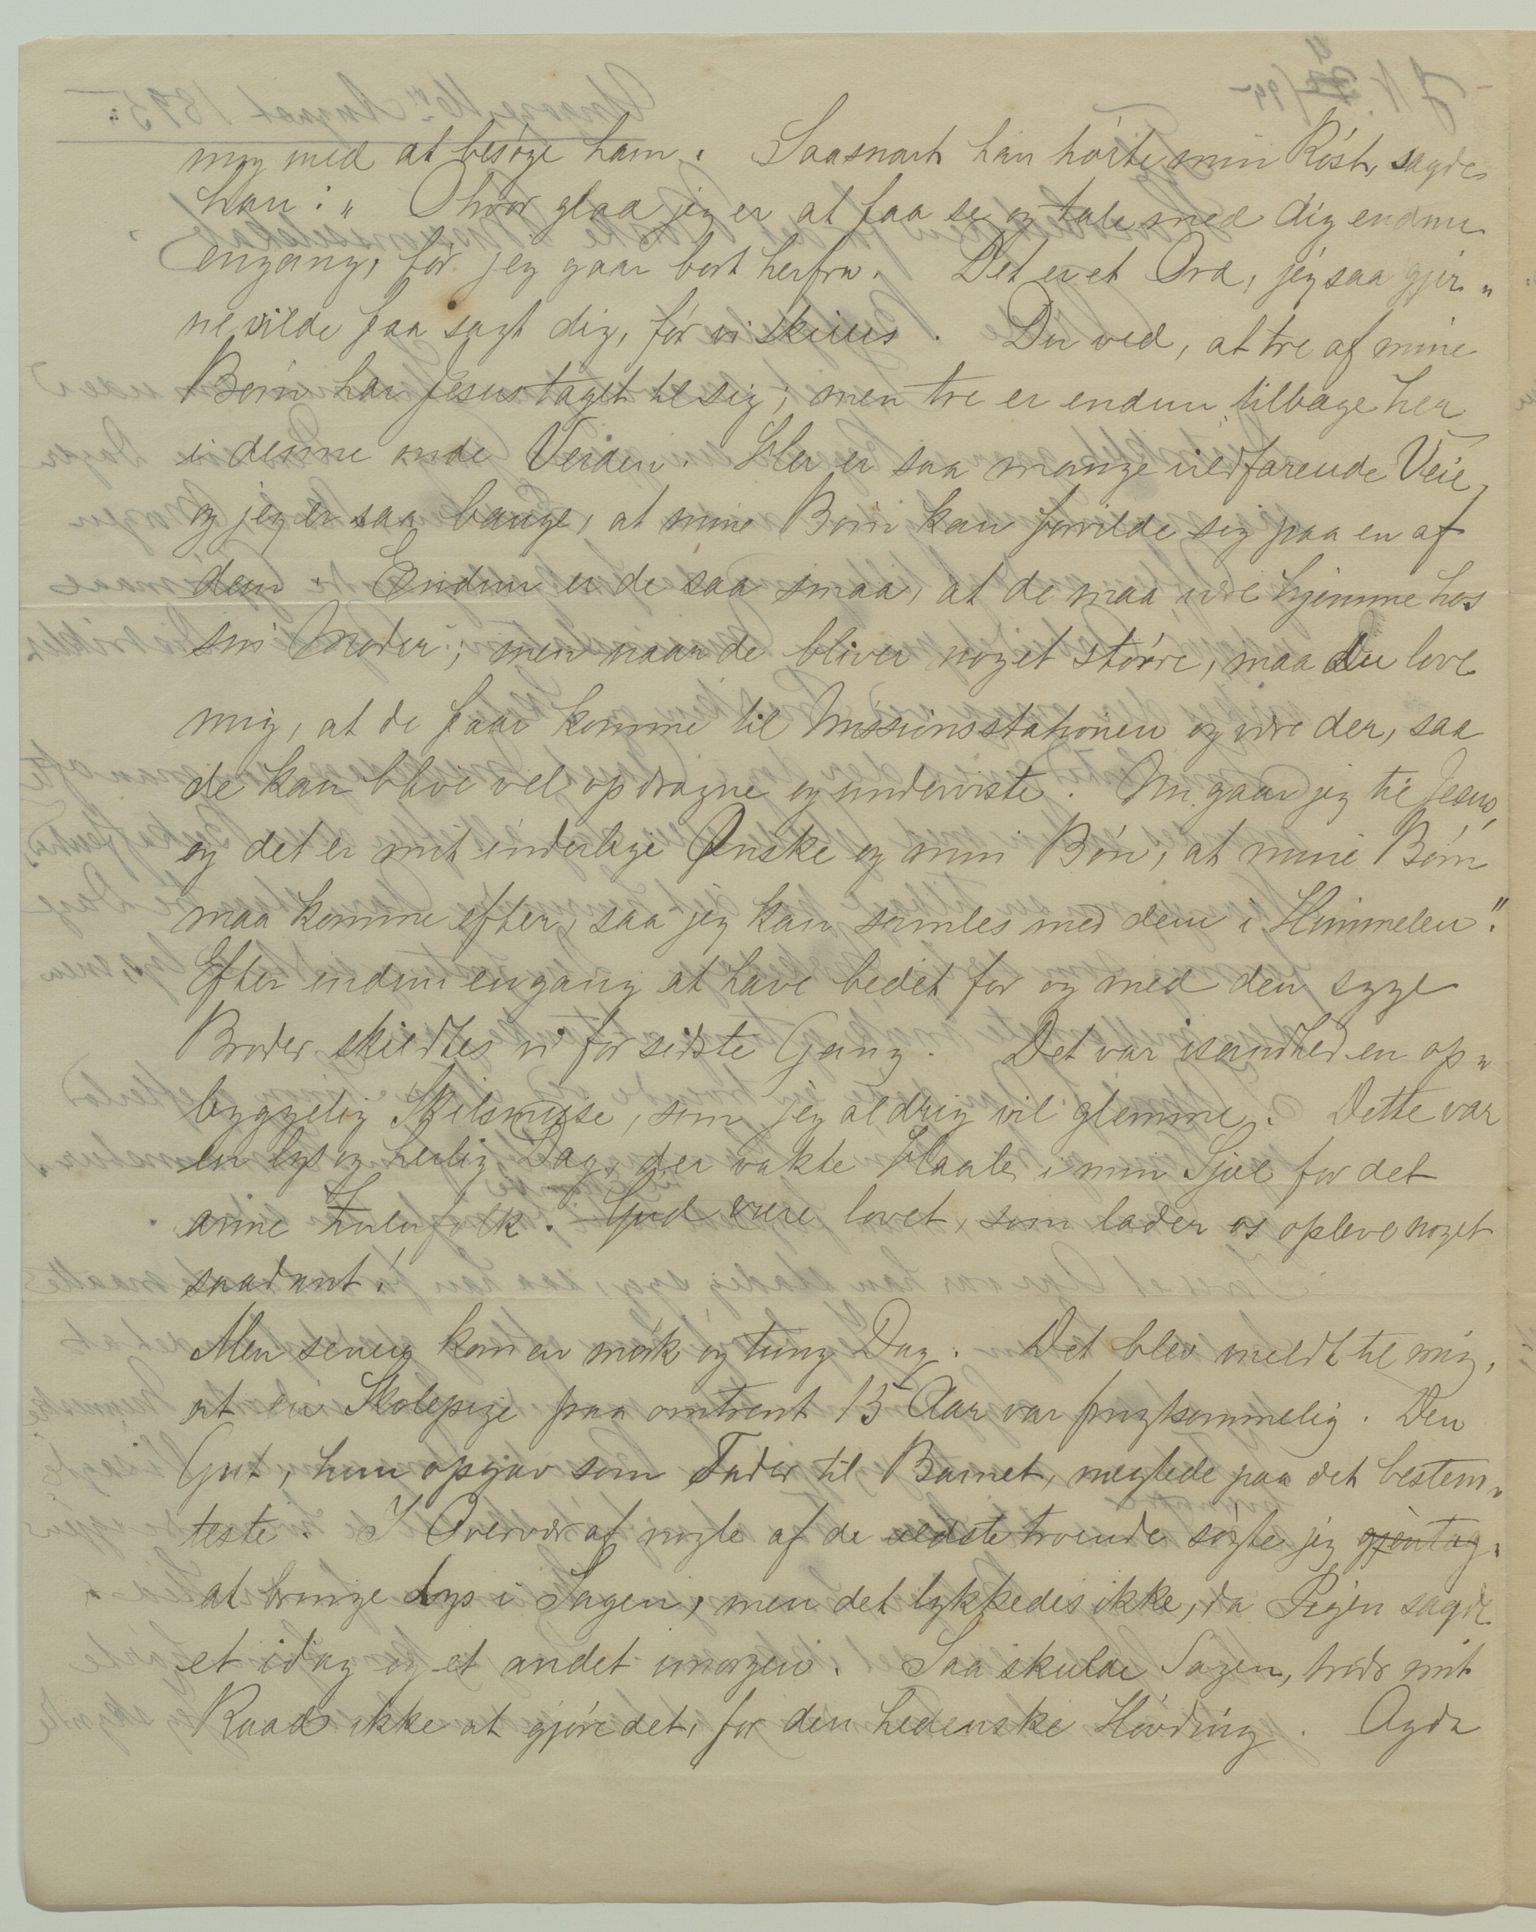 mig med at besøge ham. Saasnart han hørte min Røst, sagde
han: „O hvor glad jeg er at faa se og tale med dig endnu
engang, før jeg gaar bort herfra. Det er et Ord, jeg saa gjer„
ne vilde faa sagt dig, før vi skilles. Du ved, at tre af mine
Børn har Jesus taget til sig; men tre er endnu tilbage her
i denne onde Verden. Her er saa mange vildfarende Veie,
og jeg er saa bange, at mine Børn kan forvilde sig paa en af
dem. Endnu er de saa smaa, at de maa være hjemme hos
sin Moder; men naar de bliver noget større, maa du love
mig, at de faar komme til Missionsstationen og være der, saa
de kan blive vel opdragne og underviste. Nu gaar jeg til Jesus,
og det er mit inderlige Ønske og min Bøn, at mine Børn
maa komme efter, saa jeg kan samles med dem i Himmelen".
Efter endnu engang at have bedet for og med den syge
Broder skiltes vi for sidste Gang. Det var isandhed en op„
byggelig Skilsmisse, som jeg aldrig vil glemme. Dette var
en lys og herlig Dag, der vakte Haab i min Sjæl for det
arme Zulufolk. Gud være lovet, som lader os opleve noget
saadant!
Men senere kom en mørk og tung Dag. Det blev meldt til mig,
at en Skolepige paa omtrent 15 Aar var frugtsommelig. Den
Gut, hun opgav som Fader til Barnet, negtede paa det bestem„
teste. I Overvær af nogle af de ældste troende søgte jeg gjentag„
at bringe Lys i Sagen, men det lykkedes ikke, da Pigen sagde
et idag og et andet imorgen. Saa skulde Sagen, trods mit
Raad ikke at gjøre det, for den hedenske Høvding. Ogda